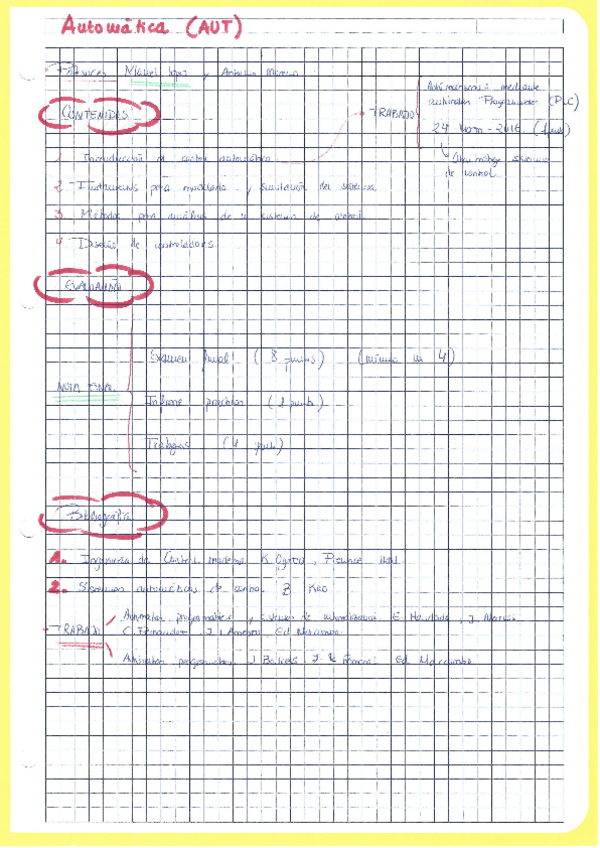 Automática (AUT)
Profesores Miguel López y Antonio Moreno
CONTENIDOS
TRABAJO
Automatismos: mediante
autómatas Programables (PLC)
24 - 2016 (1 punto)
de control
1 Introducción al control automático
2 para modelado y simulación del sistema
3 Métodos para análisis de sistemas de control
4 Diseño de controladores
EVALUACIÓN
NOTA FINAL
Examen final (8 puntos) (mínimo un 4)
Informe prácticas (1 punto)
Trabajos (1 punto)
Bibliografía
1. Ingeniería de Control moderna K. Ogata, Prentice Hall
2. Sistemas automáticos de control B Kuo
TRABAJO
Autómatas programables y de automatización E. Mandado, J. Marcos
C. Fernández, J. I Armesto Ed Marcombo
Autómatas programables J Balcells J L Romeral Ed Marcombo